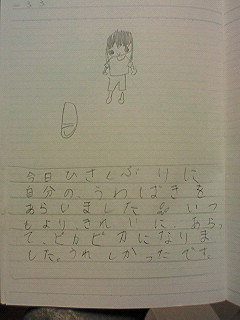 今日ひさしぶりに
自分の、うわばきを
あらいました。いつ
もより、きれいに、あらっ
て、ピカピカになりま
した。うれしかったです。